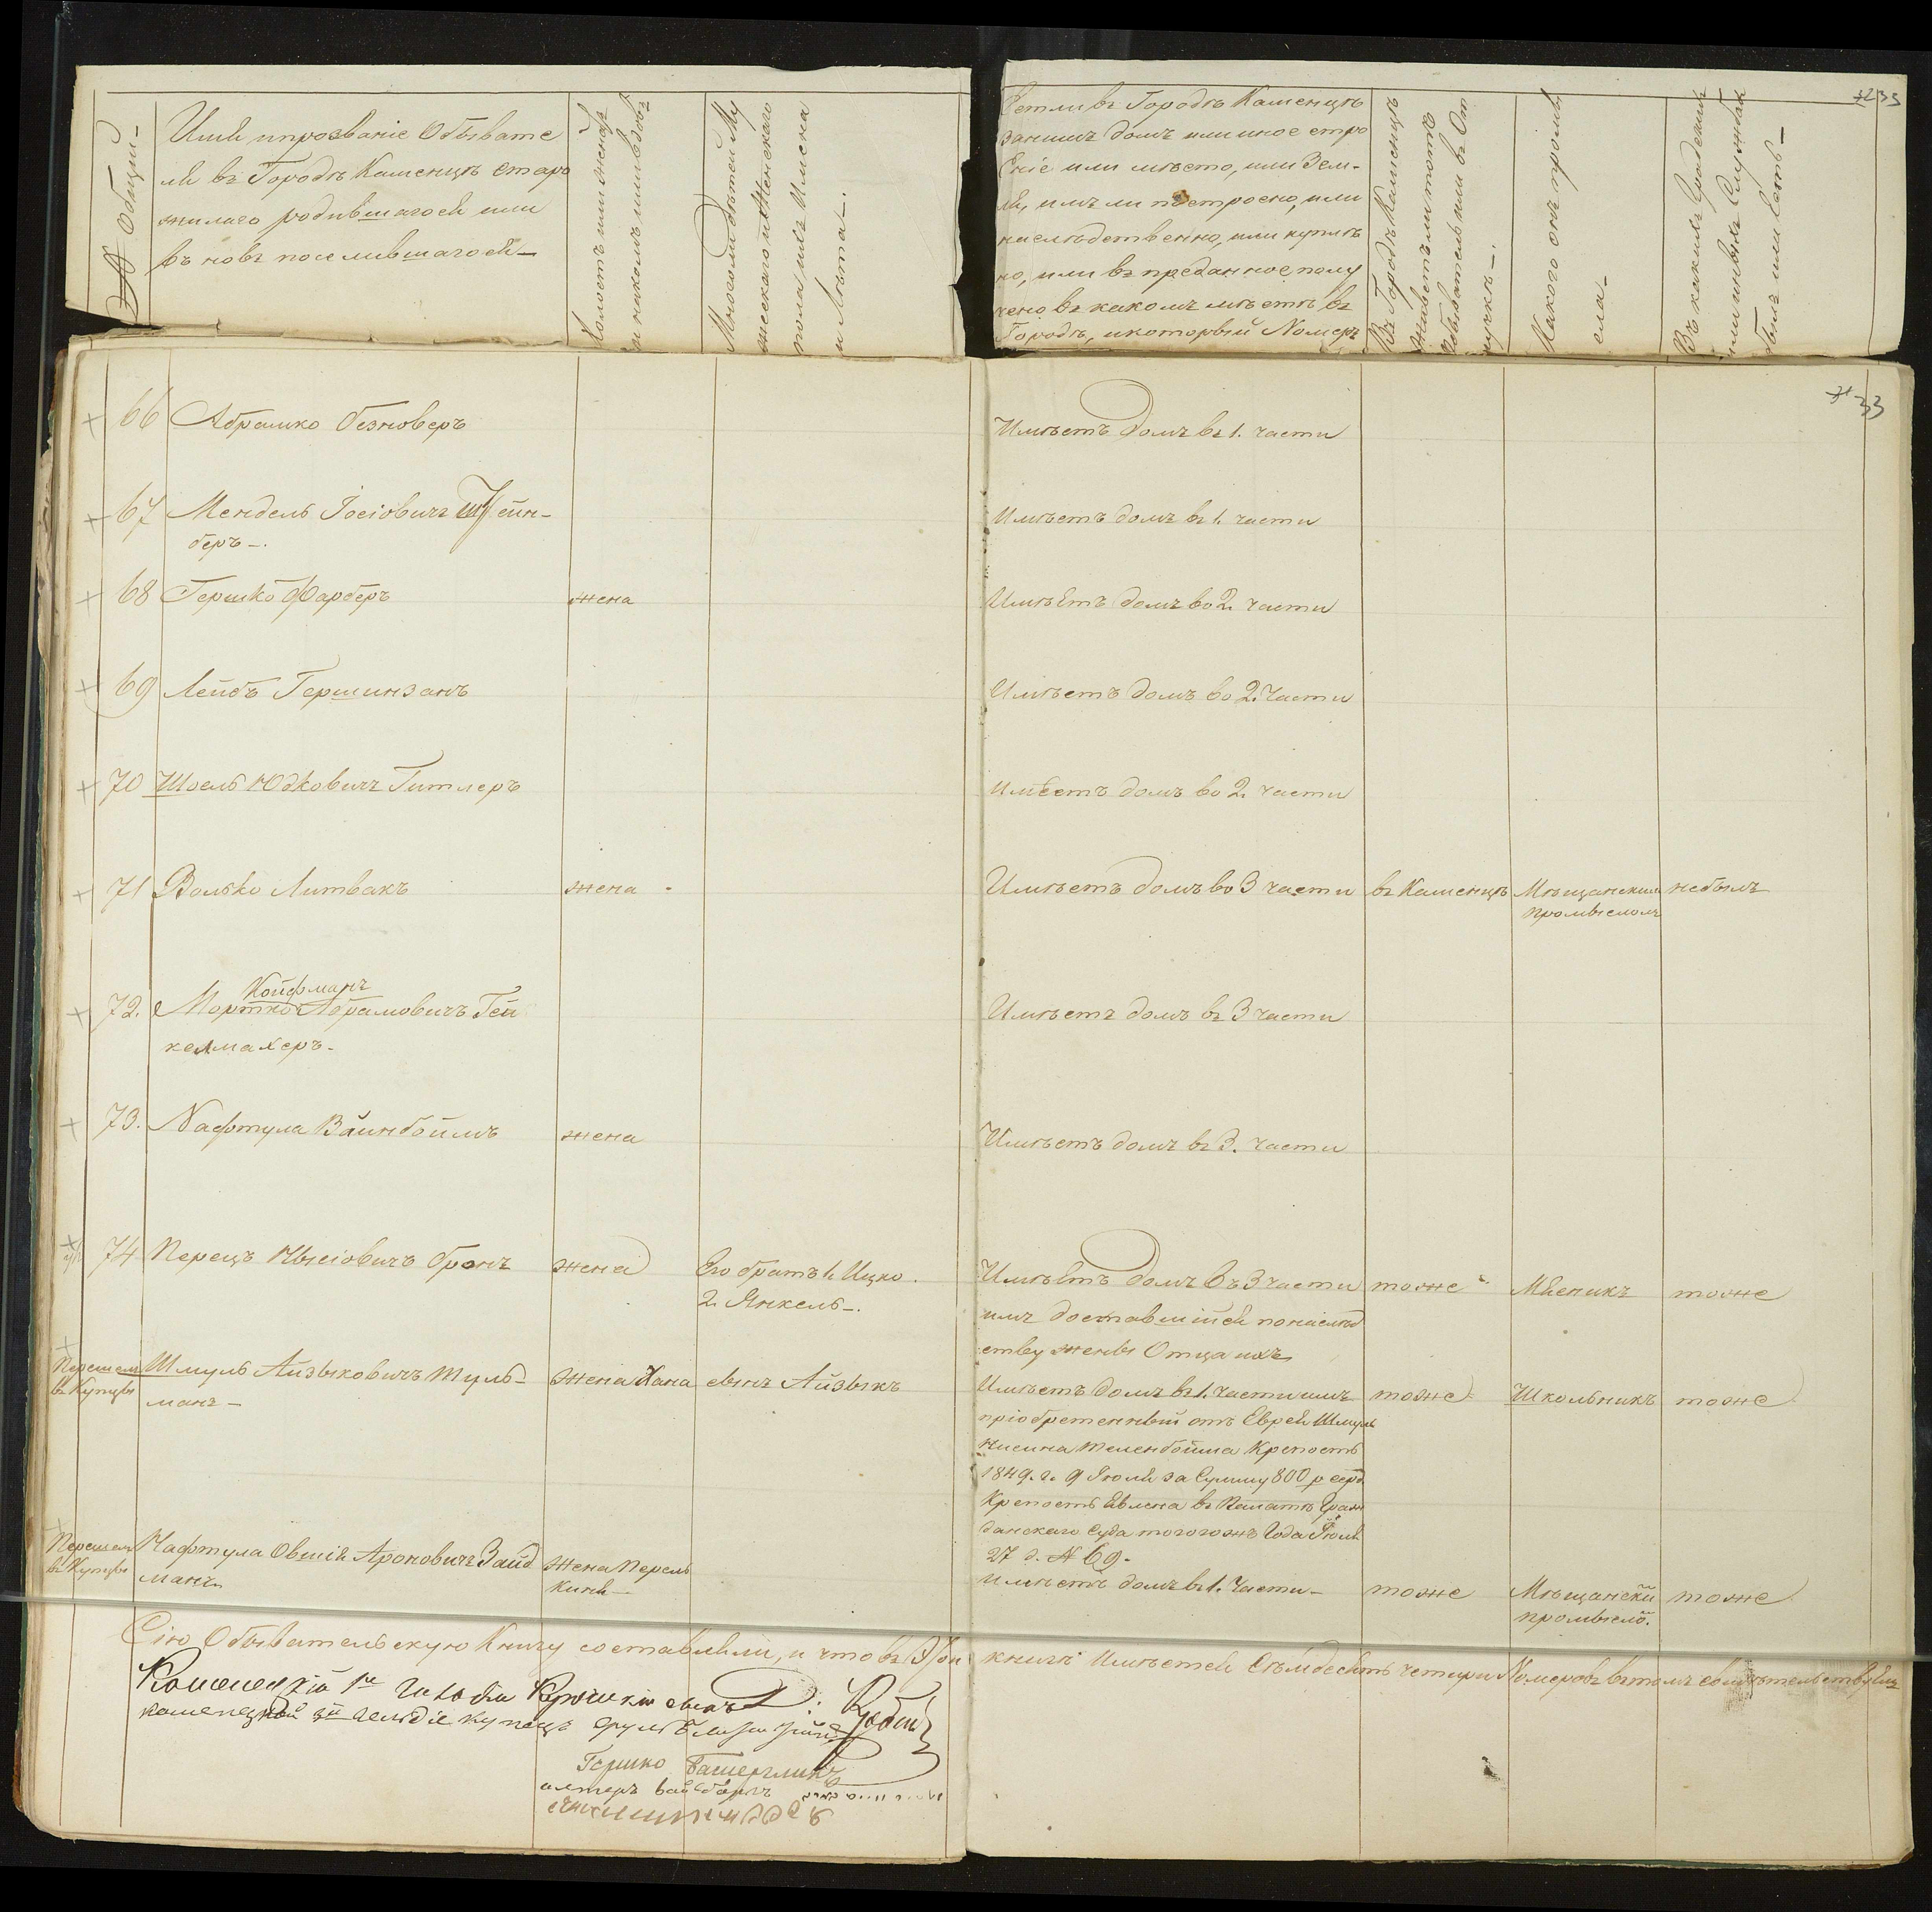 № Общий
Имя и прозваніе Обывате
ля въ Городѣ Каменцѣ старо
жилаго родившагося или
въ новѣ поселившагося
Холостъ или женатъ
и на комъ или вдовъ
Много ли дѣтей Му
жескаго и Женскаго
пола и ихъ Имена
и Лѣта
Естли въ Городѣ Каменцѣ
за нимъ домъ или иное стро
еніе или мѣсто, или Зем-
ля, имъ ли построено, или
наслѣдственно, или куплѣ
но, или въ преданное полу
чено въ какомъ мѣстѣ въ
Городѣ, и который Номеръ
Въ Городѣ Каменцѣ
живетъ ли тотъ
Обыватель или въ От
лучкѣ
Какого онъ промы
сла
Въ какихъ Градскихъ
или иныхъ Службахъ
былъ или есть
33
66 Абрамко Безноверъ
Имѣетъ домъ въ 1. части
67 Мендель Іосіовичъ Штейн-
беръ
Имѣетъ домъ въ 1. части
68 Гершко Фарберъ жена
Имѣетъ домъ во 2. части
69 Лейбъ Гершинзанъ
Имѣетъ домъ во 2. Части
70 Шоель Юдковичъ Гитлеръ
Имѣетъ домъ во 2. части
71 Волько Литвакъ жена
Имѣетъ домъ во 3 части въ Каменцѣ Мѣщанскимъ небылъ
промысломъ
Койфманъ
72. Мортко Абрамовичъ Гей
келмахеръ
Имѣетъ домъ въ 3 части
73. Нафтула Вайнбоймъ жена
Имѣетъ домъ въ 3. части
74 Перецъ Нысіовичъ Бронъ жена Его братъ 1. Ицко.
2. Янкель
Имѣетъ домъ въ 3 части тоже Мясникъ тоже
имъ доставшійся по наслѣд
ству жены Отца ихъ
Перешелъ Шмуль Айзыковичъ Шуль- жена Хана сынъ Айзыкъ
въ Купцы манъ
Имѣетъ домъ въ 1. части имъ тоже Школьникъ тоже
пріобретенный отъ Еврея Шмуля
Нисина Теленбойма Крепость
1849. г. 9 Іюля за Сумму 800 р сер.
Крепость Явлена въ Палатѣ Граж
данскаго Суда того гожъ Года Іюля
27 д. № 69.
Перешелъ Нафтула Овшія Ароновичъ Зайд жена Перель
въ Купцы манъ Киня
Имѣетъ домъ въ 1. Части тоже Мѣщанскій тоже
промыслъ.
Сію Обывательскую Книгу составляли, и что въ Этой книги Имѣется Сѣмдесятъ четыри Номеровъ въ томъ свидѣтельствуемъ
Гершко